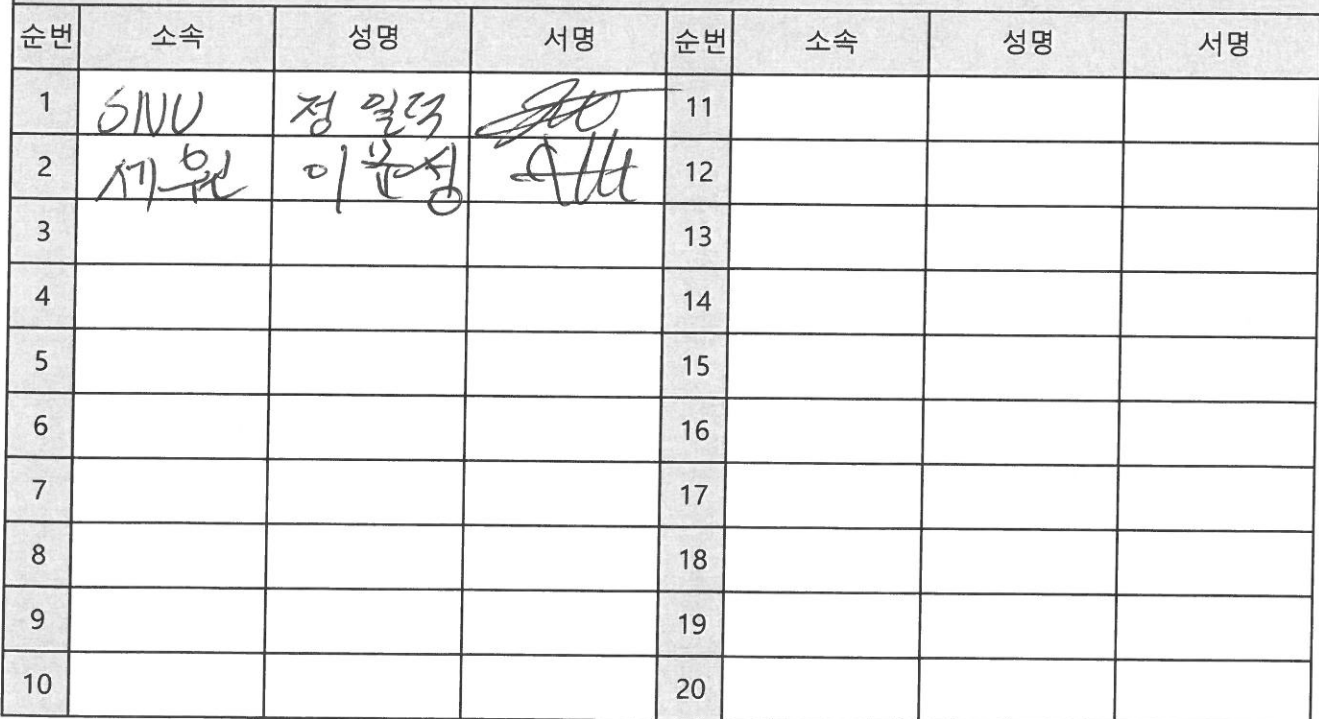 순번 소속 성명 서명 순번 소속 성명 서명
1 SNU 정일덕 11
2 세원 이문성 12
3 13
4 14
5 15
6 16
7 17
8 18
9 19
10 20